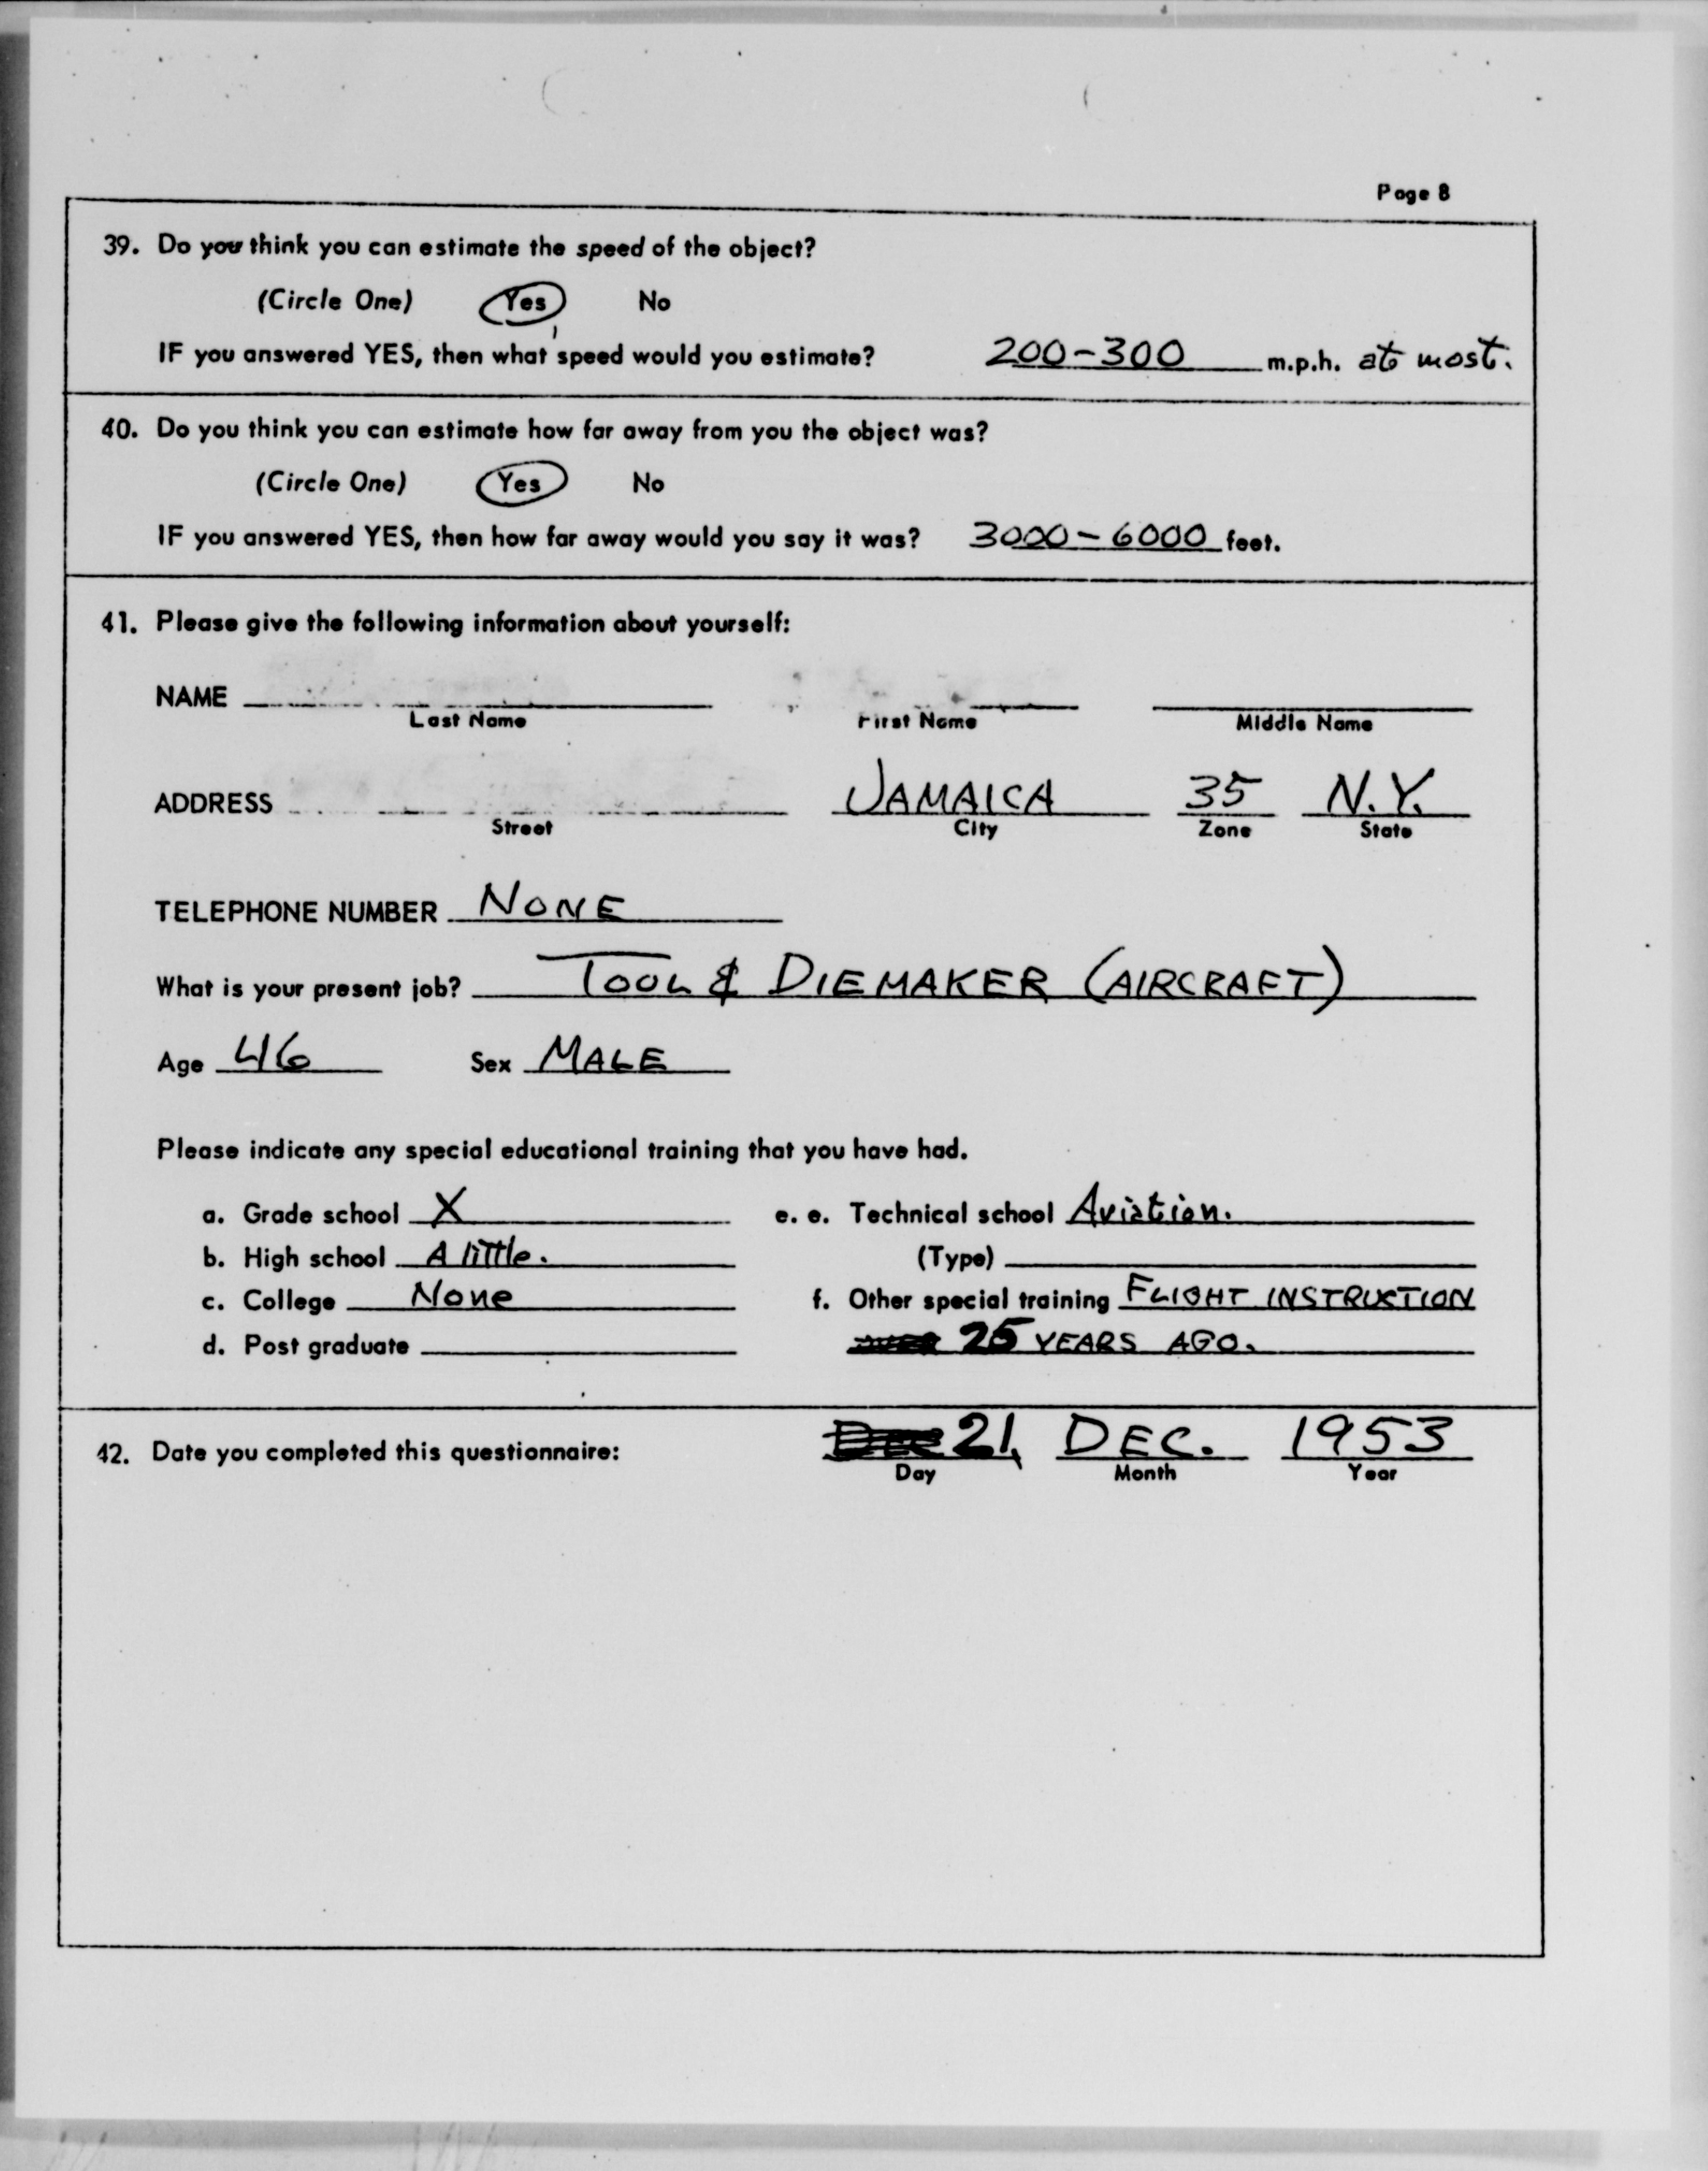 Page 8
39. Do you think you can estimate the speed of the object?
(Circle One) Yes No
IF you answered YES, then what speed would you estimate? 200-300 m.p.h. at most.
40. Do you think you can estimate how far away from you the object was?
(Circle One) Yes No
IF you answered YES, then how far away would you say it was? 3000-6000 feet.
41. Please give the following information about yourself:
NAME
Last Name First Name Middle Name
ADDRESS JAMAICA 35 N.Y.
Street City Zone State
TELEPHONE NUMBER NONE
What is your present job? TOOL & DIEMAKER (AIRCRAFT)
Age 46 Sex MALE
Please indicate any special educational training that you have had.
a. Grade school X e. e. Technical school Aviation.
b. High school A little. (Type)
c. College None f. Other special training FLIGHT INSTRUCTION
d. Post graduate 25 YEARS AGO.
42. Date you completed this questionnaire: 21, DEC. 1953
Day Month Year